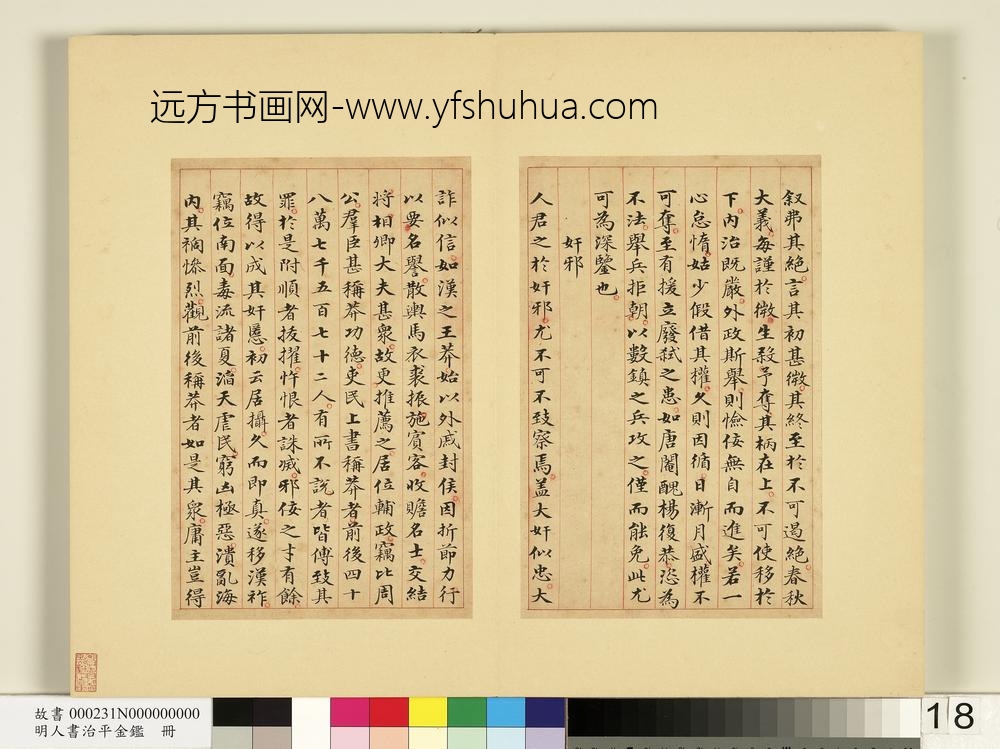 远方书画网-www.yfshuhua.com
叙弗其絶言其初甚微其終至於不可遏絶春秋
大義每謹於微生殺予奪其柄在上不可使移於
下內治既嚴外政斯舉則憸佞無自而進矣若一
心怠惰姑少假借其權久則因循日漸月盛權不
可奪至有援立廢弒之患如唐閹醜楊復恭恣為
不法舉兵拒朝以數鎮之兵攻之僅而能免此尤
可為深鑒也
奸邪
人君之於奸邪尤不可不致察焉蓋大奸似忠大
詐似信如漢之王莽始以外戚封侯因折節力行
以要名譽散輿馬衣裘振施賓客收贍名士交結
將相卿大夫甚衆故更推薦之居位輔政竊比周
公羣臣甚稱莽功德吏民上書稱莽者前後四十
八萬七千五百七十二人有所不說者皆傅致其
罪於是附順者拔擢忤恨者誅滅邪佞之才有餘
故得以成其奸慝初云居攝久而即真遂移漢祚
竊位南面毒流諸夏滔天虐民窮凶極惡潰亂海
內其禍慘烈觀前後稱莽者如是其衆庸主豈得
故書 000231N000000000
明人書治平金鑑 冊
18